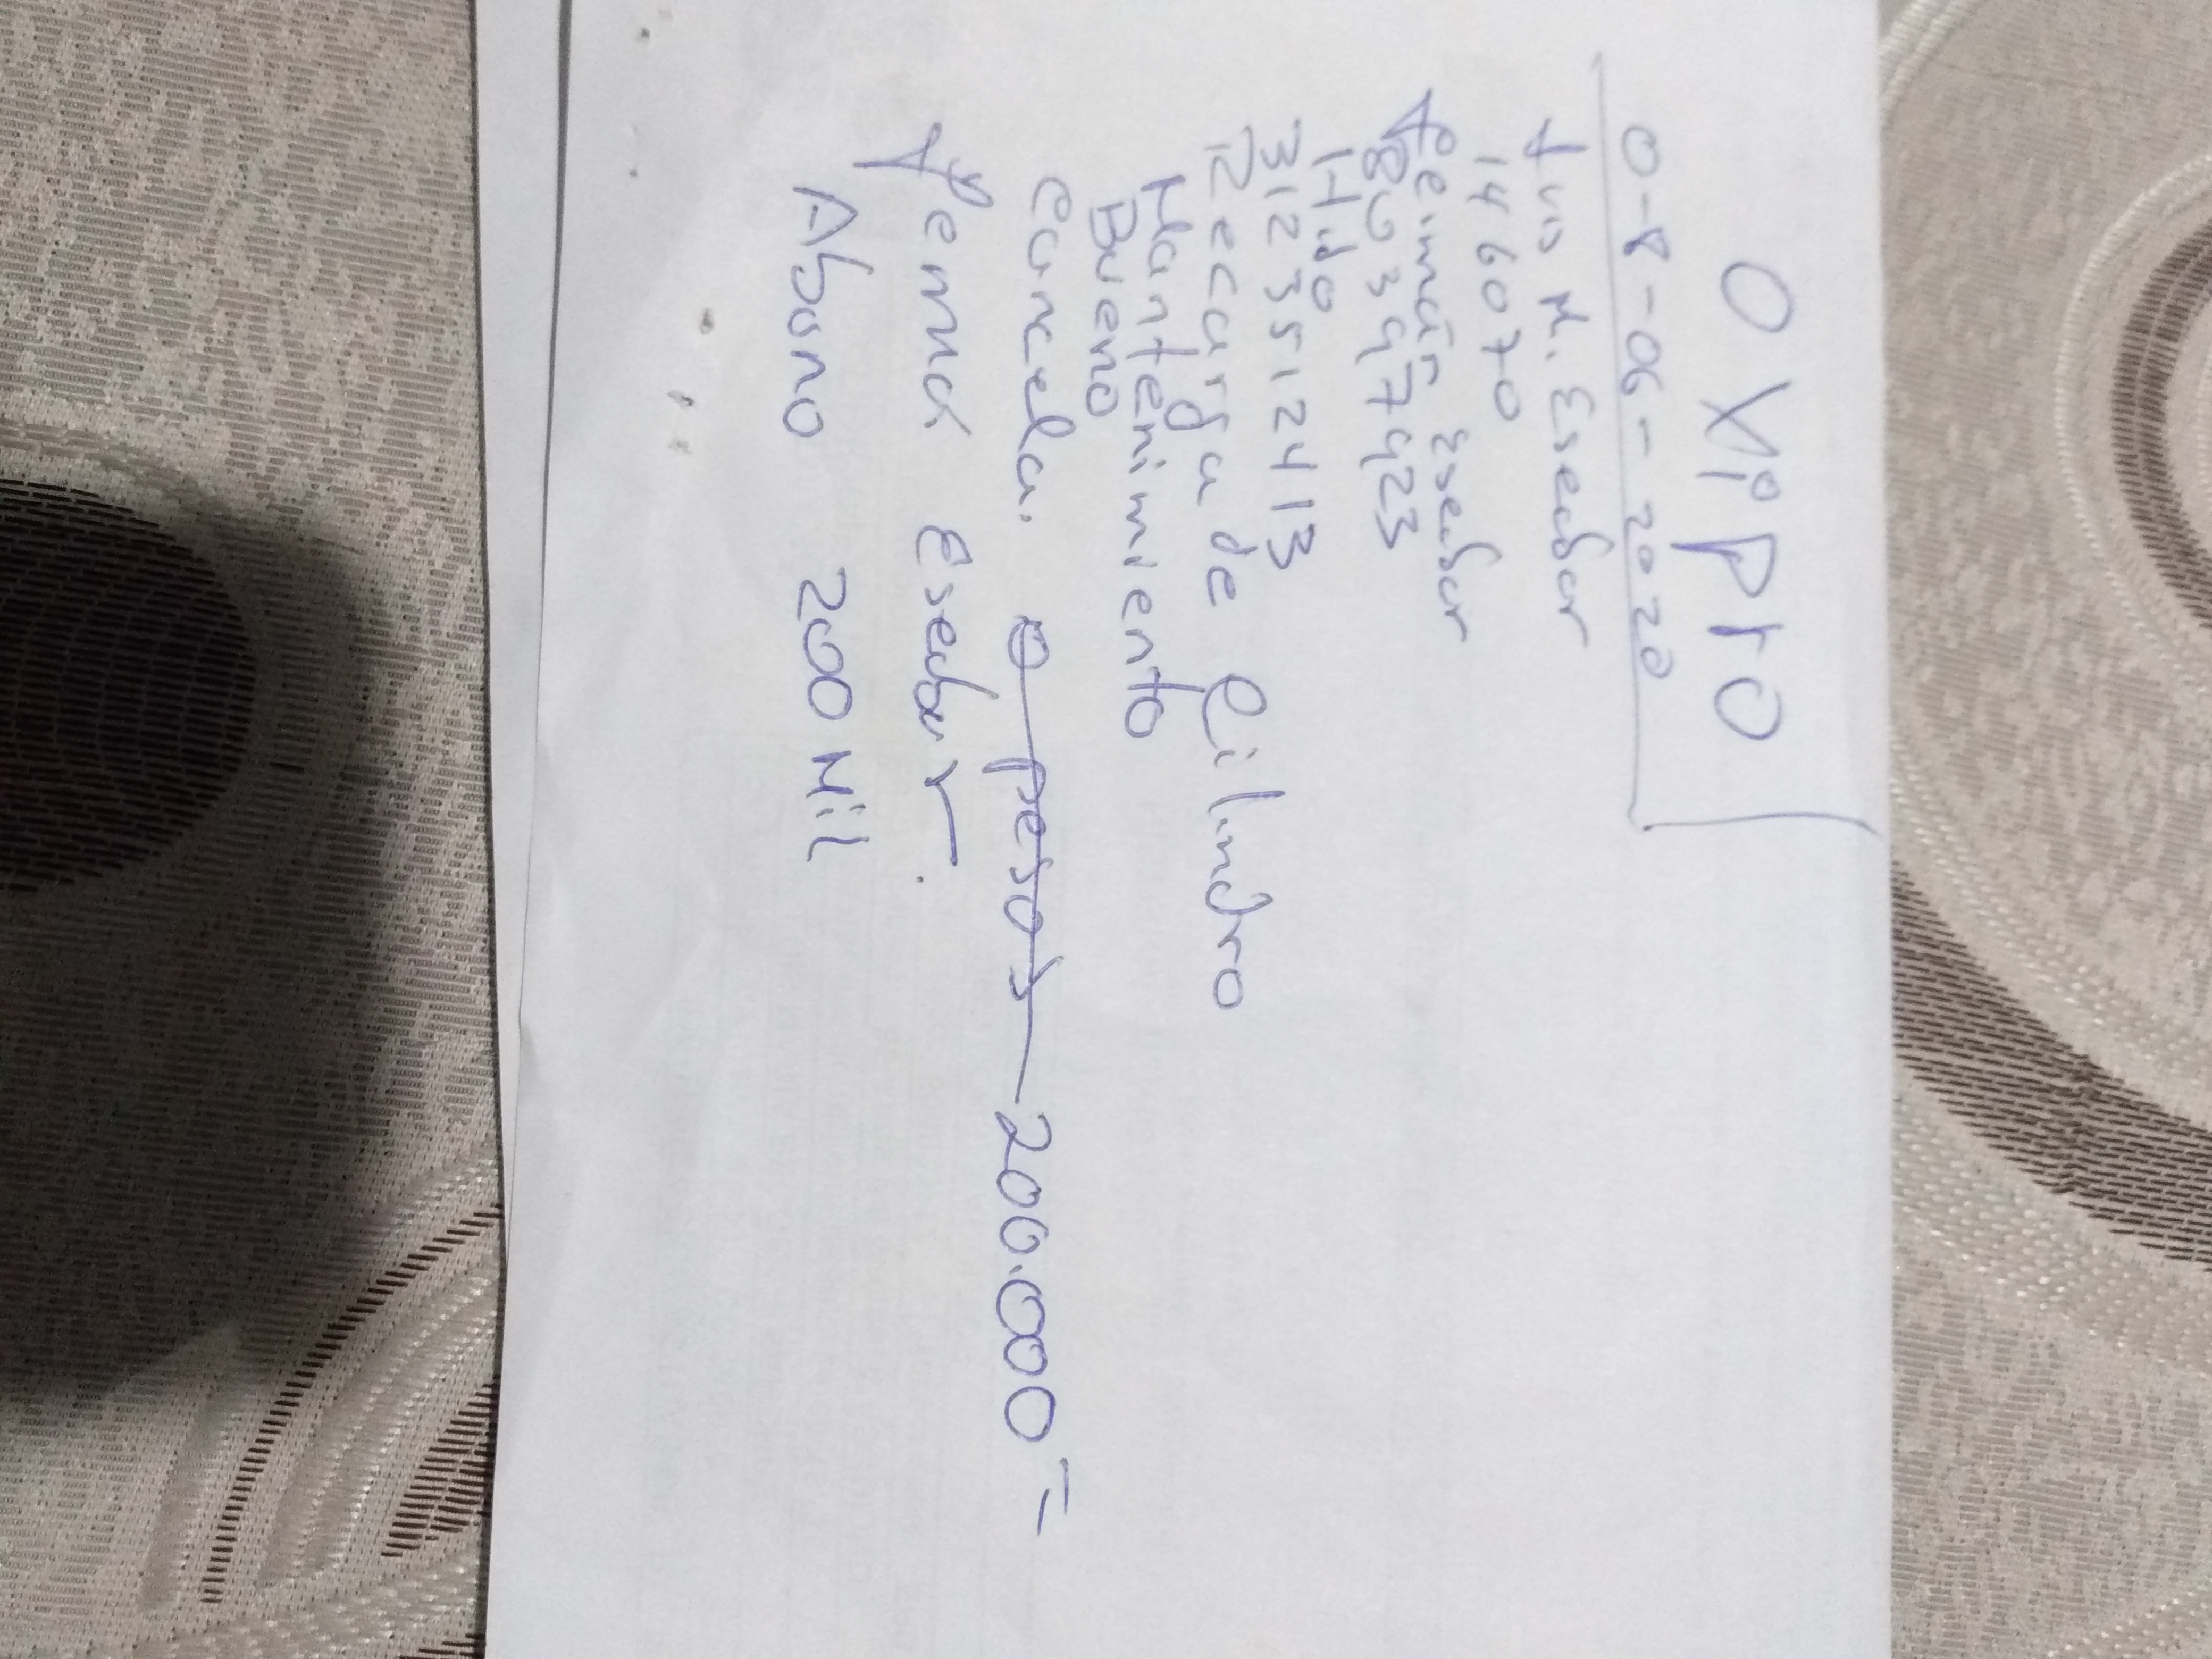 OXiPrO
0-8-06-2020
M. Escobar
146070
Escobar
Hijo
3123512413
Recarga de Cilindro
Mantenimiento
Bueno
Cancela. 0 pesos 200.000=
Escobar
Abono 200 Mil